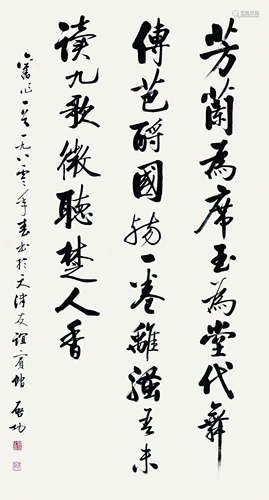 芳蘭為席玉為堂代舞
傳芭酹國殤一卷離騷吾未
讀九歌微聽楚人香
舊作一首一九八零年春書於天津友誼賓館 啟功